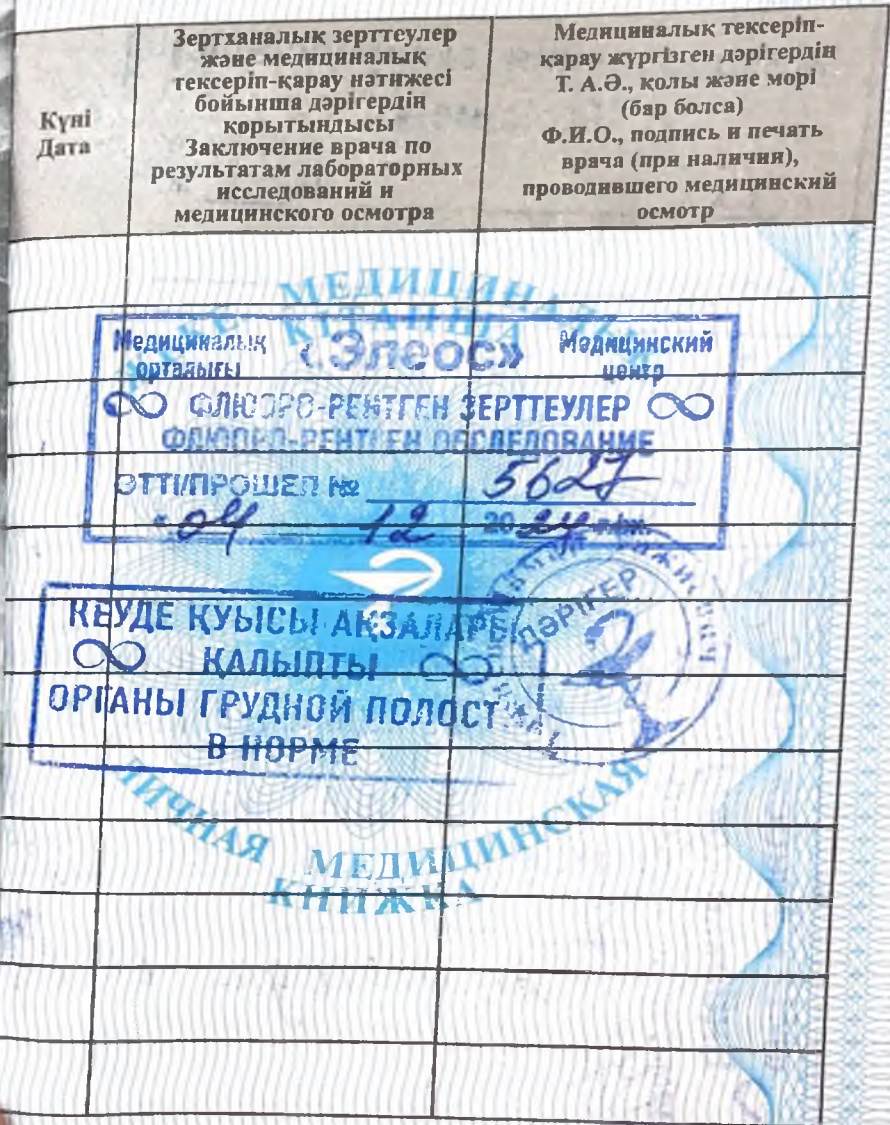 Күні
Дата
Зертханалық зерттеулер
және медициналық
тексеріп-қарау нәтижесі
бойынша дәрігердің
қорытындысы
Заключение врача по
результатам лабораторных
исследований и
медицинского осмотра
Медициналық тексеріп-
қарау жүргізген дәрігердің
Т. А.Ә., қолы және мөрі
(бар болса)
Ф.И.О., подпись и печать
врача (при наличии),
проводившего медицинский
осмотр
МЕДИЦИНАЛЫҚ
КІТАПША
Медициналық
орталығы
«Элеос»
Медицинский
центр
ФЛЮОРО-РЕНТГЕН ЗЕРТТЕУЛЕР
ФЛЮОРО-РЕНТГЕН ОБСЛЕДОВАНИЕ
ӨТТІ/ПРОШЕЛ № 5627
04 12 2024
КЕУДЕ ҚУЫСЫ АҚЗАЛАРЫ
ҚАЛЫПТЫ
ОРГАНЫ ГРУДНОЙ ПОЛОСТ
В НОРМЕ
ДӘРІГЕР
ЛИЧНАЯ МЕДИЦИНСКАЯ
КНИЖКА